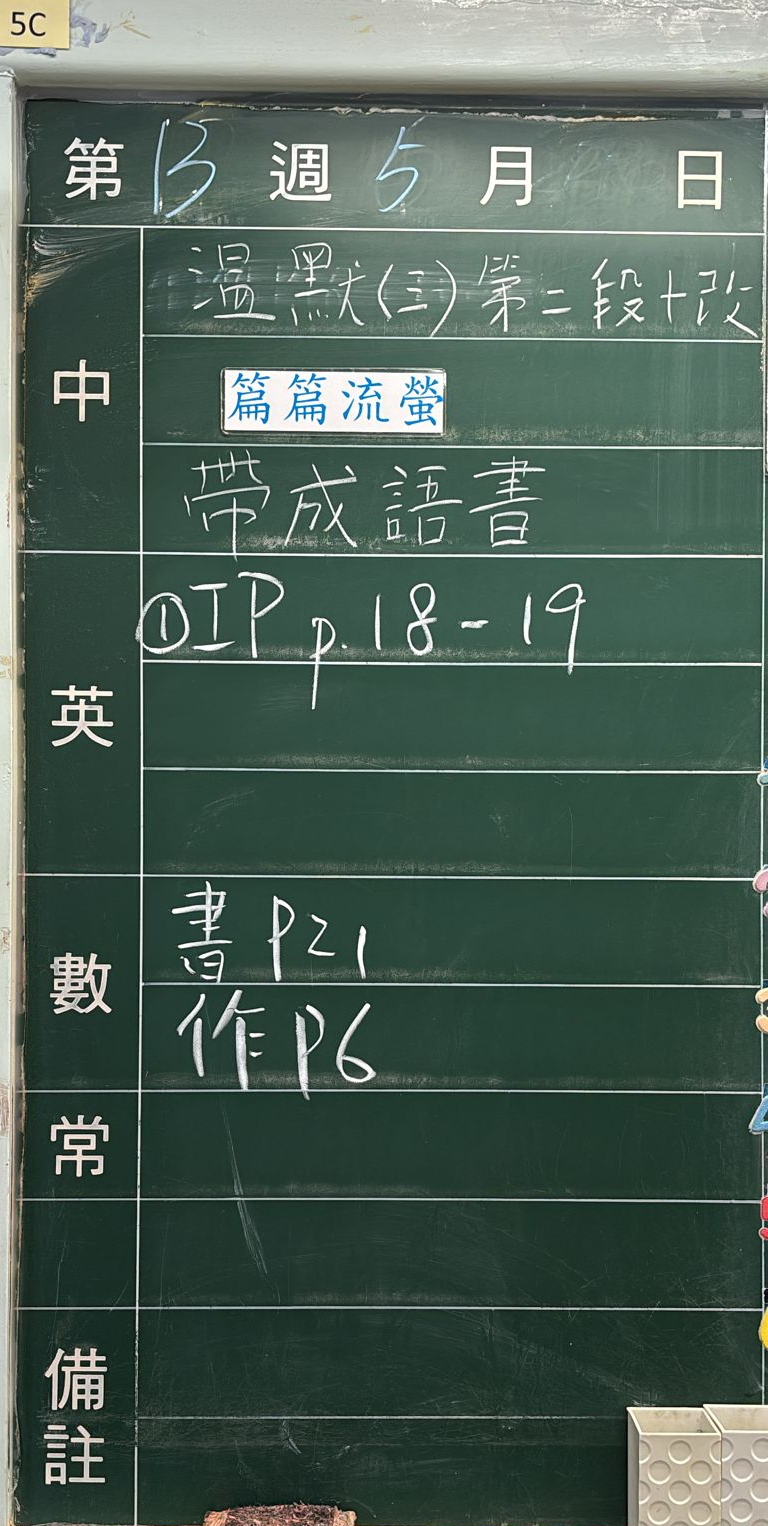 5C
第 13 週 5 月 日
中
溫默(三)第二段+改
篇篇流螢
帶成語書
英
①IP p.18-19
數
書 P21
作 P6
常
備註